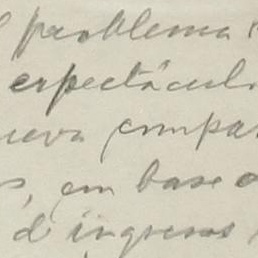 problema
espectácul
ueva compar
s, em base a
d'ingresos